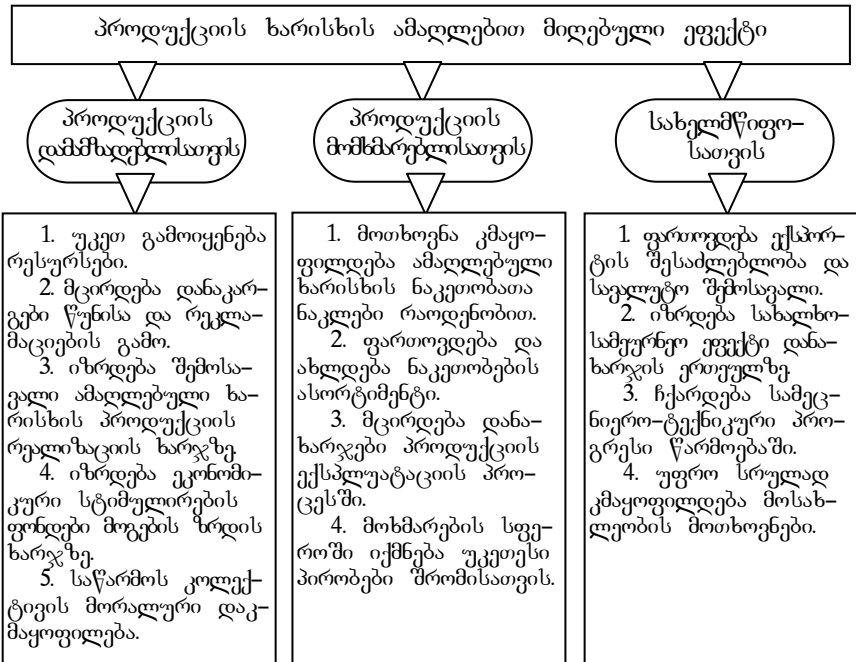 პროდუქციის ხარისხის ამაღლებით მიღებული ეფექტი
პროდუქციის
დამამზადებლისათვის
პროდუქციის
მომხმარებლისათვის
სახელმწიფო–
სათვის
1. უკეთ გამოიყენება
რესურსები.
2. მცირდება დანაკარ–
გები წუნისა და რეკლა–
მაციების გამო.
3. იზრდება შემოსა–
ვალი ამაღლებული ხა–
რისხის პროდუქციის
რეალიზაციის ხარჯზე.
4. იზრდება ეკონომი–
კური სტიმულირების
ფონდები მოგების ზრდის
ხარჯზე.
5. საწარმოს კოლექ–
ტივის მორალური დაკ–
მაყოფილება.
1. მოთხოვნა კმაყო–
ფილდება ამაღლებული
ხარისხის ნაკეთობათა
ნაკლები რაოდენობით.
2. ფართოვდება და
ახლდება ნაკეთობების
ასორტიმენტი.
3. მცირდება დანა–
ხარჯები პროდუქციის
ექსპლუატაციის პრო–
ცესში.
4. მოხმარების სფე–
როში იქმნება უკეთესი
პირობები შრომისათვის.
1. ფართოვდება ექსპორ–
ტის შესაძლებლობა და
სავალუტო შემოსავალი.
2. იზრდება სახალხო–
სამეურნეო ეფექტი დანა–
ხარჯის ერთეულზე.
3. ჩქარდება სამეც–
ნიერო–ტექნიკური პრო–
გრესი წარმოებაში.
4. უფრო სრულად
კმაყოფილდება მოსახ–
ლეობის მოთხოვნები.